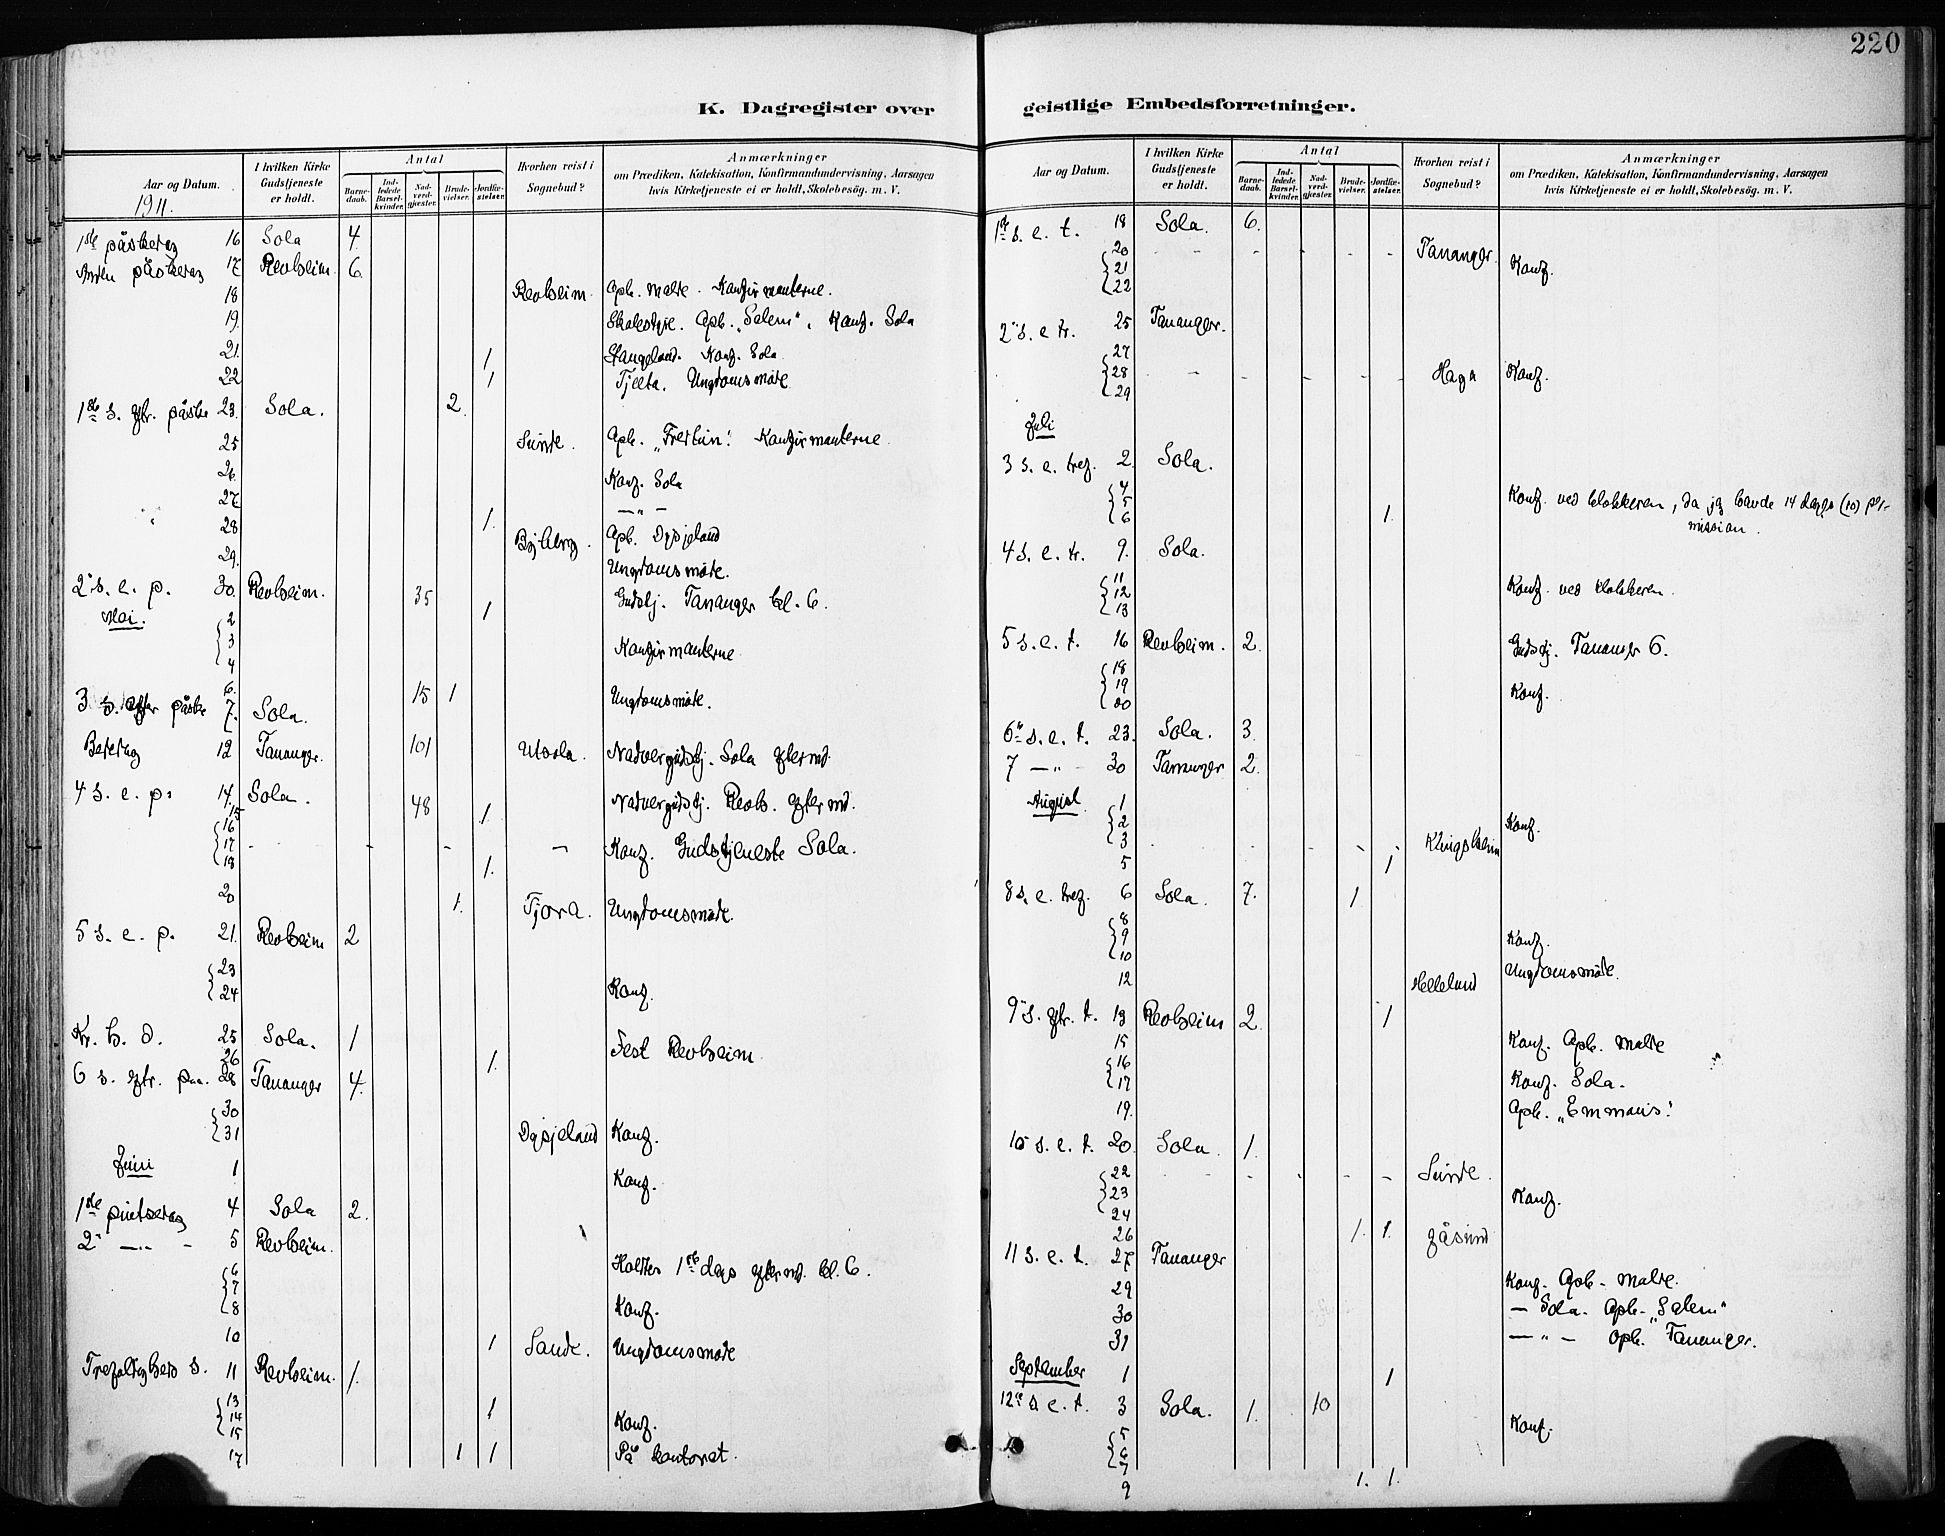 220
K. Dagregister over
geistlige Embedsforretninger.
Aar og Datum.
1911.
I hvilken Kirke Gudstjeneste er holdt.
Antal
Barnedaab.
Indledede Barselkvinder.
Nadverdgjæster.
Brudevielser.
Jordfæstelser.
Hvorhen reist i Sognebud?
Anmærkninger
om Prædiken, Katekisation, Konfirmandundervisning, Aarsagen
hvis Kirketjeneste ei er holdt, Skolebesög. m. V.
1ste påskedag 16 Sola 4.
Anden påskedag 17 Revheim 6.
18 Revheim. Opb. Malde. Konfirmanterne.
19. Skolestyre. Opb. "Salem". Konf. Sola
21. 1 Stangeland. Konf. Sola
22 1 Tjelta. Ungdomsmöde
1ste s. eftr. påske 23. Sola. 2.
25 Sunde. Opb. "Fredtun". Konfirmanterne.
26. Konf. Sola
27. — " —
28 1. Opb. Dysjeland
29. Ungdomsmöde.
2 s. e. p. 30. Revheim. 35 Gudstj. Tananger kl. 6.
Mai. 2 1
3
4 Konfirmanterne
6. 15 1 Ungdomsmöde.
3 s. efter påske 7. Sola.
Bededag 12 Tananger. 101 Utsola. Nadvergudstj. Sola efter md.
4 s. e. p. 14. Sola. 48 Nadvergudstj. Revh. efter md.
15 1.
16
17 Konf. Gudstjeneste Sola.
18 1.
20 1. Tjora. Ungdomsmöde.
5 s. e. p. 21. Revheim 2
23
24 Konf.
Kr. h. d. 25 Sola. 1 Fest Revheim
26 1.
6 s. eftr. paa. 28 Tananger 4.
30
31 Dysjeland Konf.
Juni 1 Konf.
1ste pintsedag 4 Sola 2.
2 — " — 5 Revheim. Holdtes 1ste dags efter md. kl. 6.
6
7
8 Konf.
10 1 Sande. Ungdomsmöde
Trefoldigheds s. 11 Revheim. 1.
13 1
14 Konf.
15
17 1 1 På kontoret.
Aar og Datum.
I hvilken Kirke Gudstjeneste er holdt.
Antal
Barnedaab.
Indledede Barselkvinder.
Nadverdgjæster.
Brudevielser.
Jordfæstelser.
Hvorhen reist i Sognebud?
Anmærkninger
om Prædiken, Katekisation, Konfirmandundervisning, Aarsagen
hvis Kirketjeneste ei er holdt, Skolebesög. m. V.
1ste s. e. t. 18 Sola. 6.
20 Tananger.
21 Konf.
22
2 s. e. tr. 25 Tananger.
27
28 Haga Konf.
29
Juli
3 s. e. tref. 2. Sola.
4
5 Konf. ved klokkeren, da jeg havde 14 dages (10) per-
6 1. mission.
4 s. e. tr. 9. Sola.
11
12 Konf. ved klokkeren.
13
5 s. e. t. 16 Revheim. 2. Gudstj. Tananger 6.
18
19 Konf.
20
6 s. e. t. 23. Sola. 3.
7 — " — 30 Tananger 2.
August 1
2 Konf.
3 Klingsheim
5 1
8 s. e. tref. 6 Sola. 7. 1
8
9 Konf.
10
12 Helleland Ungdomsmöde.
9 s. eftr. t. 13 Revheim 2. 1
15 Konf. Opb. Malde
16
17 Konf. Sola.
19. Opb. "Emmaus".
10 s. e. t. 20. Sola. 1.
22 Sunde.
23 Konf.
24
26 1. 1. Gåsund
11 s. e. t. 27 Tananger
29 Konf. Opb. Malde.
30 — Sola. Opb. "Salem"
31 — " — Opb. Tananger.
September 1 1
12te s. e. t. 3 Sola. 1. 10
5 Konf.
6
7
9 1. 1.